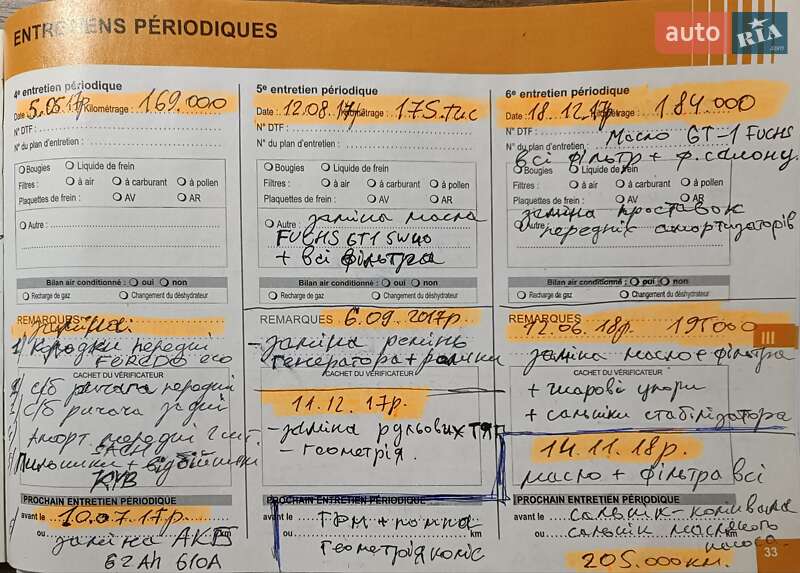 auto RIA.com
ENTRETIENS PÉRIODIQUES
4e entretien périodique
Date : 5.05.17р. Kilométrage : 169.000
N° DTF :
N° du plan d'entretien :
Bougies Liquide de frein
Filtres : à air à carburant à pollen
Plaquettes de frein : AV AR
Autre :
Bilan air conditionné : oui non
Recharge de gaz Changement du déshydrateur
REMARQUES заміна:
1 колодки передні
FERODO eco
CACHET DU VÉRIFICATEUR
с/б ричага передні
с/б ричага задні
Аморт. передні 2 шт.
SACH
Пильники + відбійники
KYB
PROCHAIN ENTRETIEN PÉRIODIQUE
avant le 10.07.17р.
ou заміна АКБ
62Ah 610A
5e entretien périodique
Date : 12.08.17р Kilométrage : 175.тис
N° DTF :
N° du plan d'entretien :
Bougies Liquide de frein
Filtres : à air à carburant à pollen
Plaquettes de frein : AV AR
Autre : заміна масла
FUCHS GT1 5W40
+ всі фільтра
Bilan air conditionné : oui non
Recharge de gaz Changement du déshydrateur
REMARQUES 6.09.2017р.
- заміна ремінь
генератора + ролики
CACHET DU VÉRIFICATEUR
11.12.17р.
- заміна рульових тяг
- геометрія.
PROCHAIN ENTRETIEN PÉRIODIQUE
avant le ГРМ + помпа
ou km
Геометрія коліс
6e entretien périodique
Date : 18.12.17р Kilométrage : 184.000
N° DTF :
N° du plan d'entretien : Масло GT-1 FUCHS
всі фільтр + ф. салону
Bougies Liquide de frein
Filtres : à air à carburant à pollen
Plaquettes de frein : AV AR
заміна проставок
Autre : передніх амортизаторів
Bilan air conditionné : oui non
Recharge de gaz Changement du déshydrateur
REMARQUES
12.06.18р. 195000
III
заміна масло + фільтра
CACHET DU VÉRIFICATEUR
+ шарові упори
+ сальники стабілізатора
14.11.18р.
масло + фільтра всі
PROCHAIN ENTRETIEN PÉRIODIQUE
avant le сальник-колінвала
сальник масляного
ou насоса km
205.000км.
33